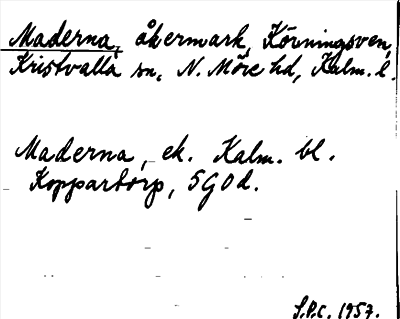 Maderna, åkermark, Körningsven,
Kristvalla sn, N. Möre hd, Kalm. l.
Maderna, ek. Kalm. bl.
Koppartorp, 5G0d.
S.P.C. 1957.